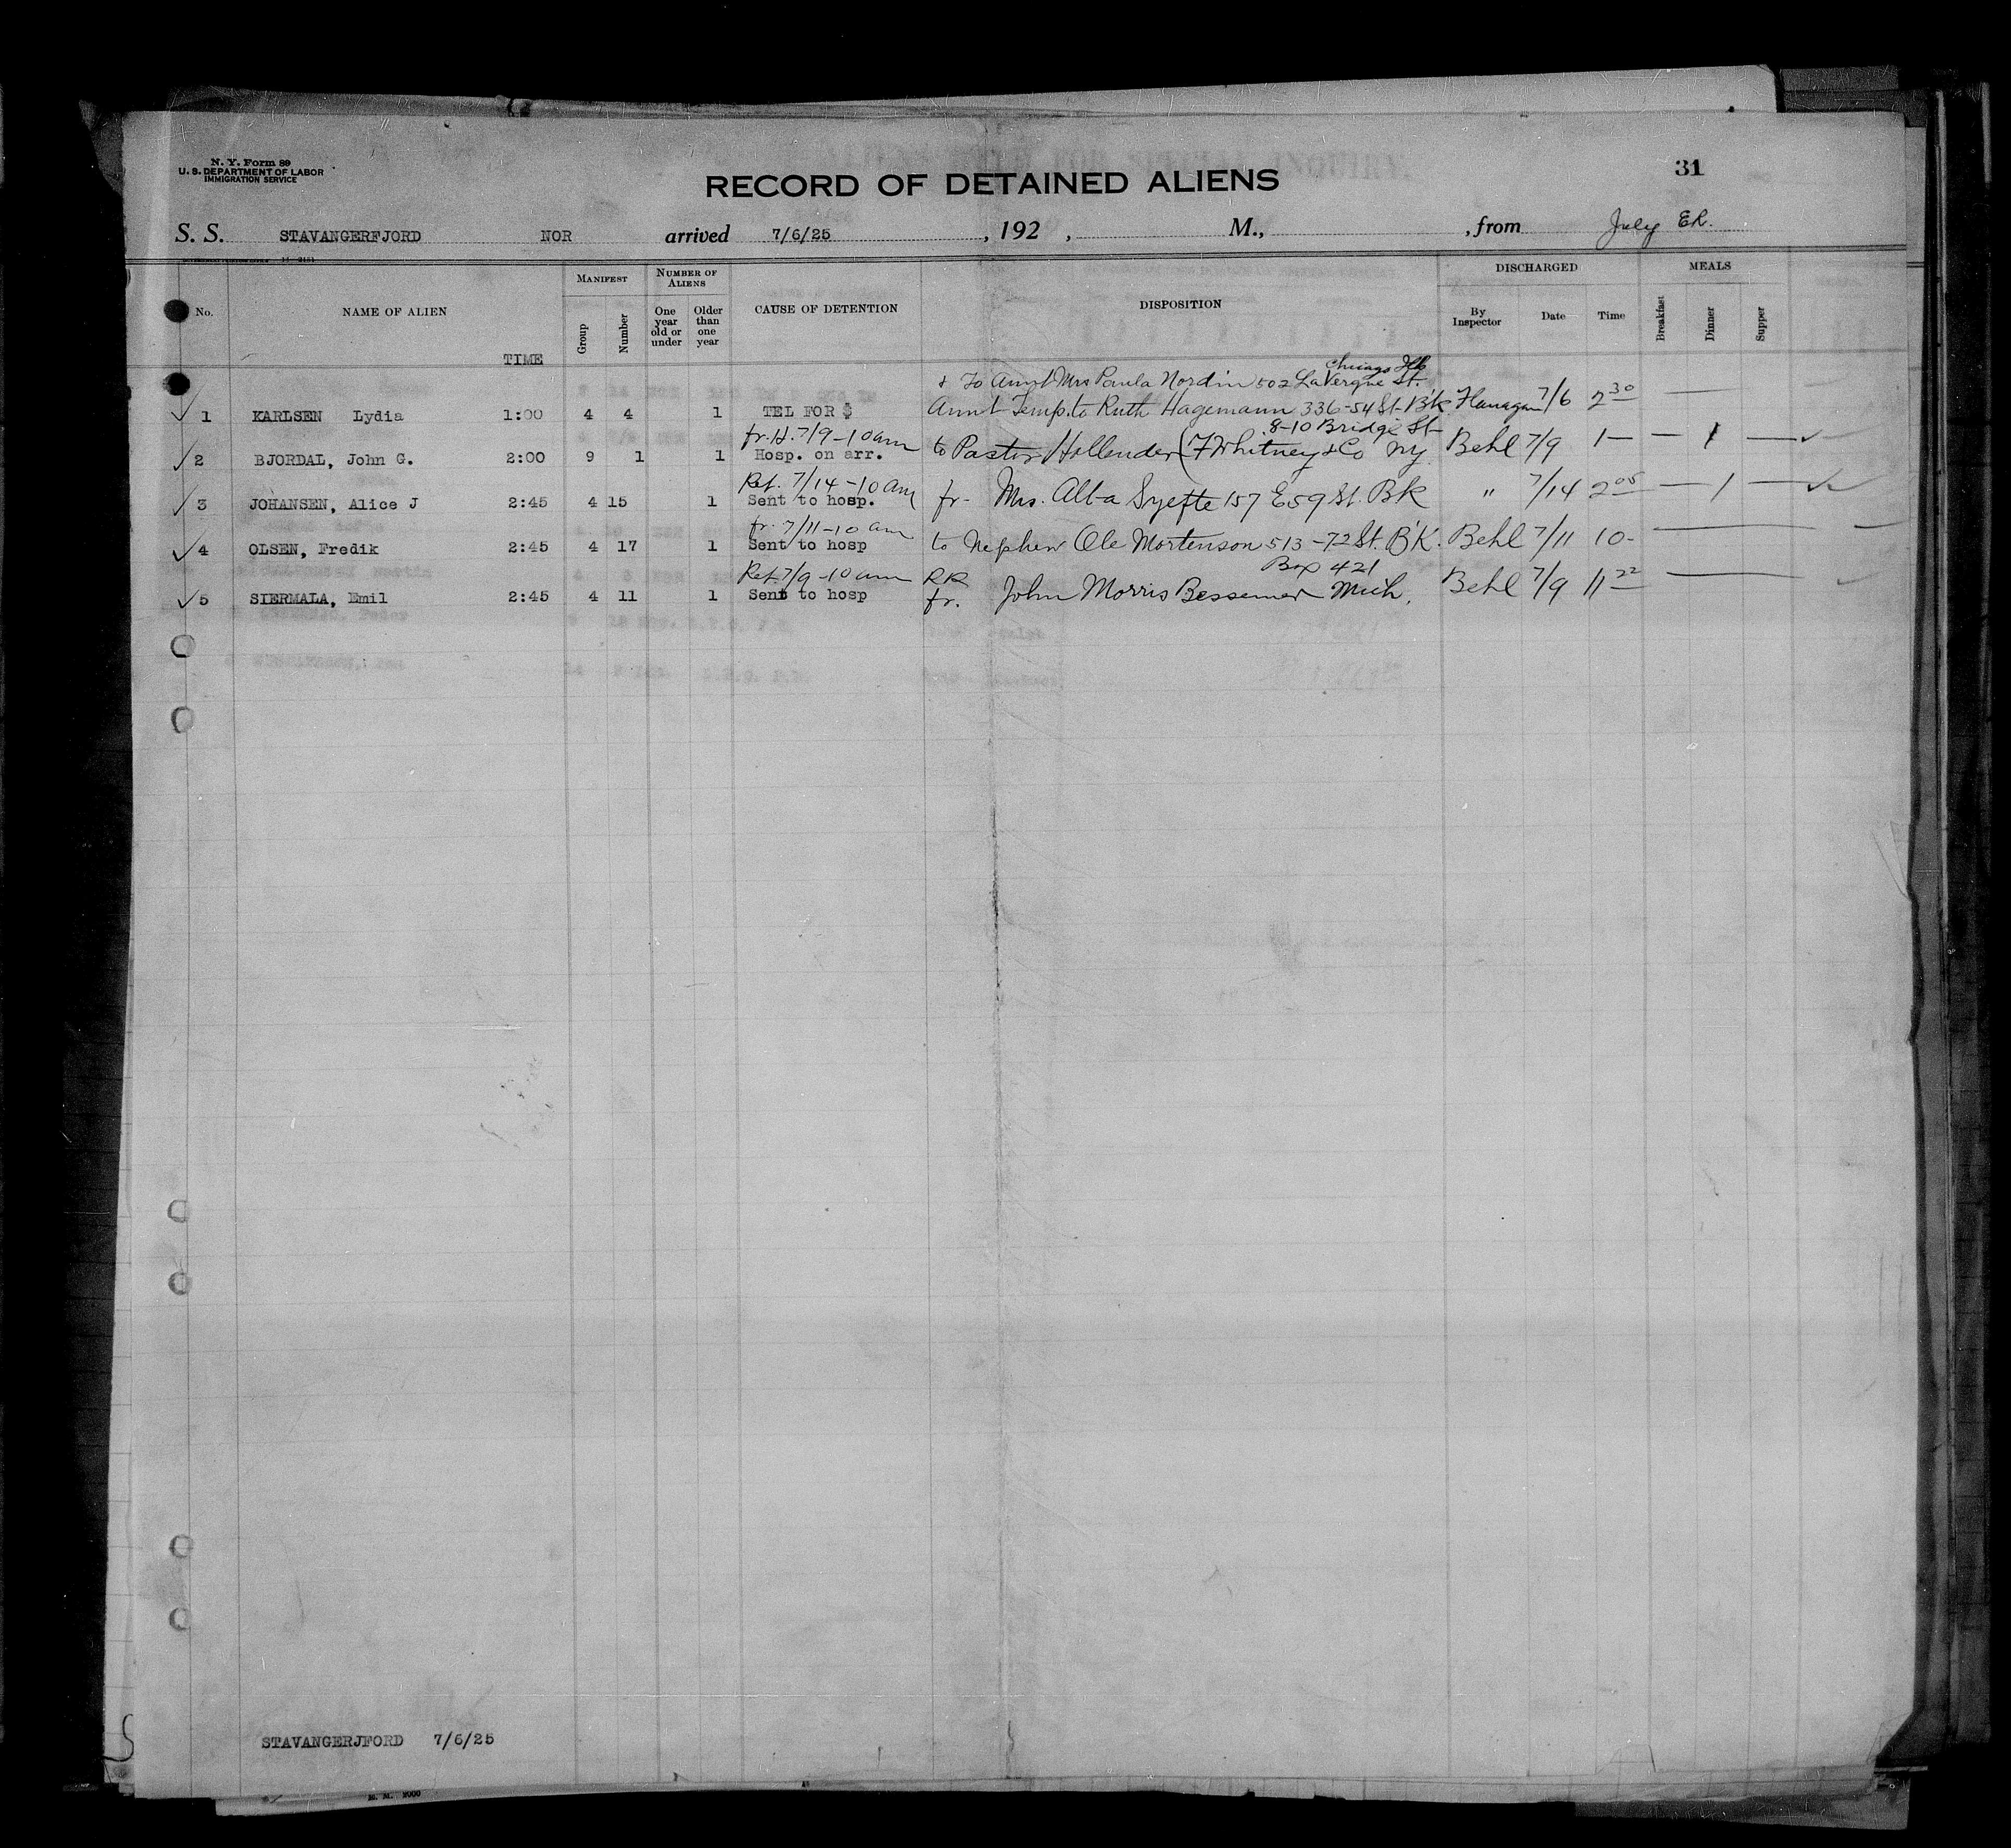 N. Y. Form 89
U. S. DEPARTMENT OF LABOR
IMMIGRATION SERVICE
31
RECORD OF DETAINED ALIENS
S. S. STAVANGERFJORD NOR arrived 7/6/25 , 192 , M., , from July ER.
No. NAME OF ALIEN TIME MANIFEST Group Number NUMBER OF ALIENS One year old or under Older than one year CAUSE OF DETENTION DISPOSITION DISCHARGED By Inspector Date Time MEALS Breakfast Dinner Supper
Chicago Ill
+ To Aunt Mrs Paula Nordin 502 LaVergne St.
1 KARLSEN Lydia 1:00 4 4 1 TEL FOR $ Aunt Temp. to Ruth Hagemann 336-54 St. Bk Flanagan 7/6 2 30 —
fr. H. 7/9-10am 8-10 Bridge St
2 BJORDAL, John G. 2:00 9 1 1 Hosp. on arr. to Pastor Hollender (F Whitney & Co NY Behl 7/9 1— — 1 —
Ret. 7/14-10am
3 JOHANSEN, Alice J 2:45 4 15 1 Sent to hosp. fr- Mrs. Syefte 157 E 59 St. Bk " 7/14 2 05 — 1 —
fr. 7/11-10 am
4 OLSEN, Fredik 2:45 4 17 1 Sent to hosp to Nephew Ole Mortenson 513-72 St. B'K. Behl 7/11 10-
Ret. 7/9-10am RR Box 421
5 SIERMALA, Emil 2:45 4 11 1 Sent to hosp fr. John Morris Bessemer Mich. Behl 7/9 11 22
STAVANGERJFORD 7/6/25
M. M. 2000